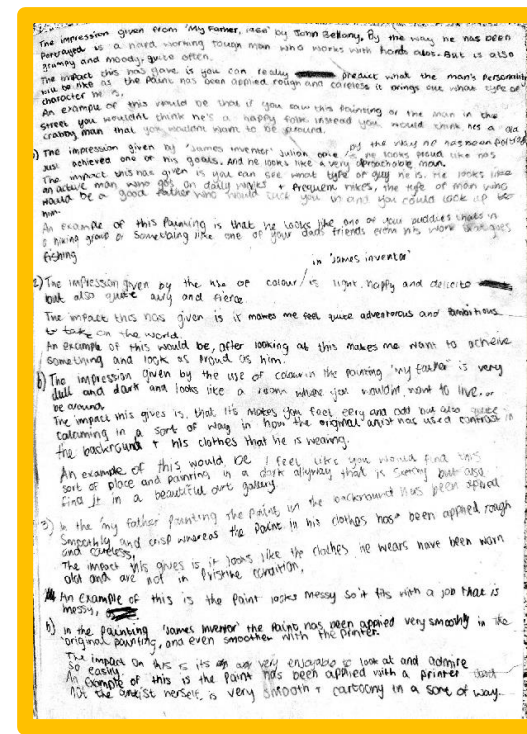 The impression given from 'My Father, 1966' by John Bellany, By the way he has been
portrayed is a hard working tough man who works with hands alot. But is also
grumpy and moody, quite often.
The impact this has gave is you can really predict what the man's personality
will be like as the paint has been applied rough and careless it brings out what type of
character he is,
An example of this would be that if you saw this painting or the man in the
street you wouldnt think he's a happy instead you would think hes a old
crabby man that you wouldnt want to be around.
b) The impression given by 'James inventor' Julian opie by the way he has been portray
just achieved one of his goals. And he looks like a very approachable man.
The impact this has given is you can see what type of guy he is. He looks like
an active man who gos on daily walks + frequent hikes, the type of man who
would be a good father who would tuck you in and you could look up to
him.
An example of this Painting is that he looks like one of your buddies thats in
a hiking group or something like one of your dads friends from his work that goes
fishing
2) The impression given by the use of colour in 'James inventor' is light, happy and
but also quite airy and fierce
The impact this has given is it makes me feel quite adventorous and ambitious
to take on the world.
An example of this would be, after looking at this makes me want to acheive
something and look as proud as him.
b) The impression given by the use of colour in the painting 'my father' is very
dull and dark and looks like a room where you wouldnt want to live, or
be around
The impact this gives is, that its makes you feel eery and odd but also quite
calaming in a sort of way in how the original artist has used contrast in
the background + his clothes that he is wearing.
An example of this would be I feel like you would find this
sort of place and painting in a dark allyway that is but also
find it in a beautiful art gallery.
3) In the 'my father' Painting the paint in the background has been spread
smoothly and crisp whereas the paint in his clothes has been applied rough
and careless,
The impact this gives is it looks like the clothes he wears have been worn
alot and are not in Pristine condition,
An example of this is the Paint looks messy so it fits with a job that is
messy,
b) In the painting 'James inventor' the paint has been applied very smoothly in the
original painting, and even smoother with the printer.
The impact on this is its very enjoyable to look at and admire
so easily.
An example of this is the paint has been applied with a printer and
not the artist herself, is very smooth + cartoony in a sort of way.